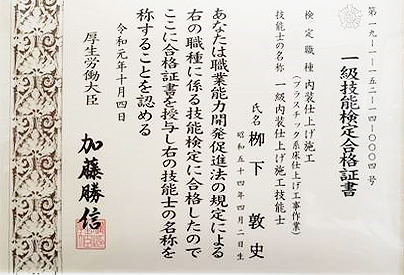 第一九-一-一五二-一四-〇〇〇四号
一級技能検定合格証書
検定職種 内装仕上げ施工
(プラスチック系床仕上げ工事作業)
技能士の名称 一級内装仕上げ施工技能士
氏名 栁下敦史
昭和五十四年四月二日生
あなたは職業能力開発促進法の規定による
右の職種に係る技能検定に合格したので
ここに合格証書を授与し右の技能士の名称を
称することを認める
令和元年十月四日
厚生労働大臣 加藤勝信